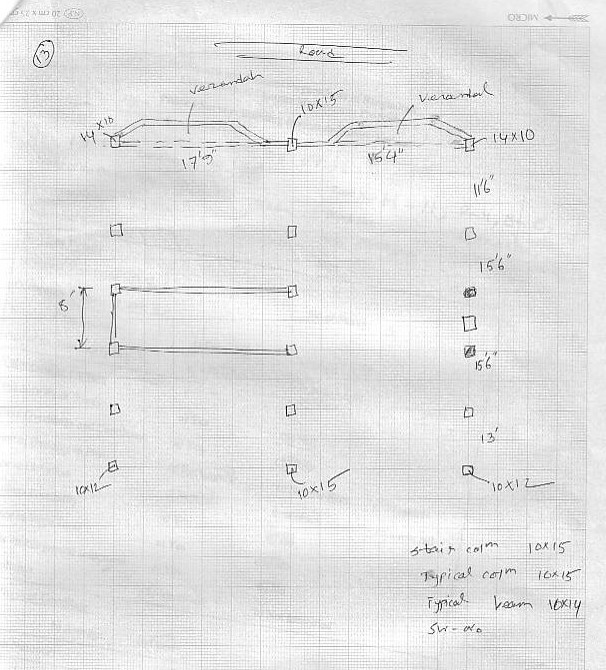 MICRO
20 cm x 25 cm
3
Road
verandah
10x15
verandah
14x10
14x10
17'9"
15'4"
11'6"
15'6"
8'
15'6"
13'
10x12
10x15
10x12
stair colm 10x15
Typical colm 10x15
Typical beam 10x14